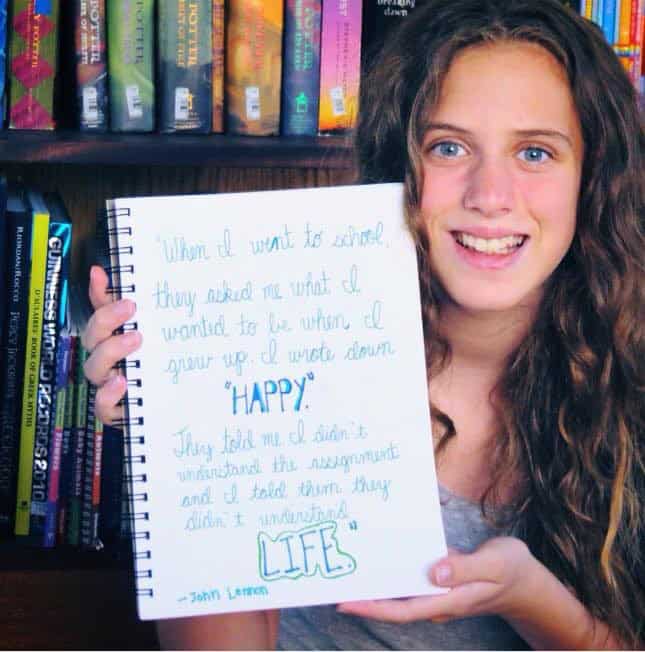 POTTER
POTTER
POTTER
POTTER
breaking
dawn
RIORDAN/ROCCO PERCY JACKSON
D'AULAIRES' BOOK OF GREEK MYTHS
GUINNESS WORLD RECORDS 2010
Baby Animals
"When I went to school,
they asked me what I
wanted to be when I
grew up. I wrote down
"HAPPY."
They told me I didn't
understand the assignment
and I told them they
didn't understand
LIFE."
- John Lennon